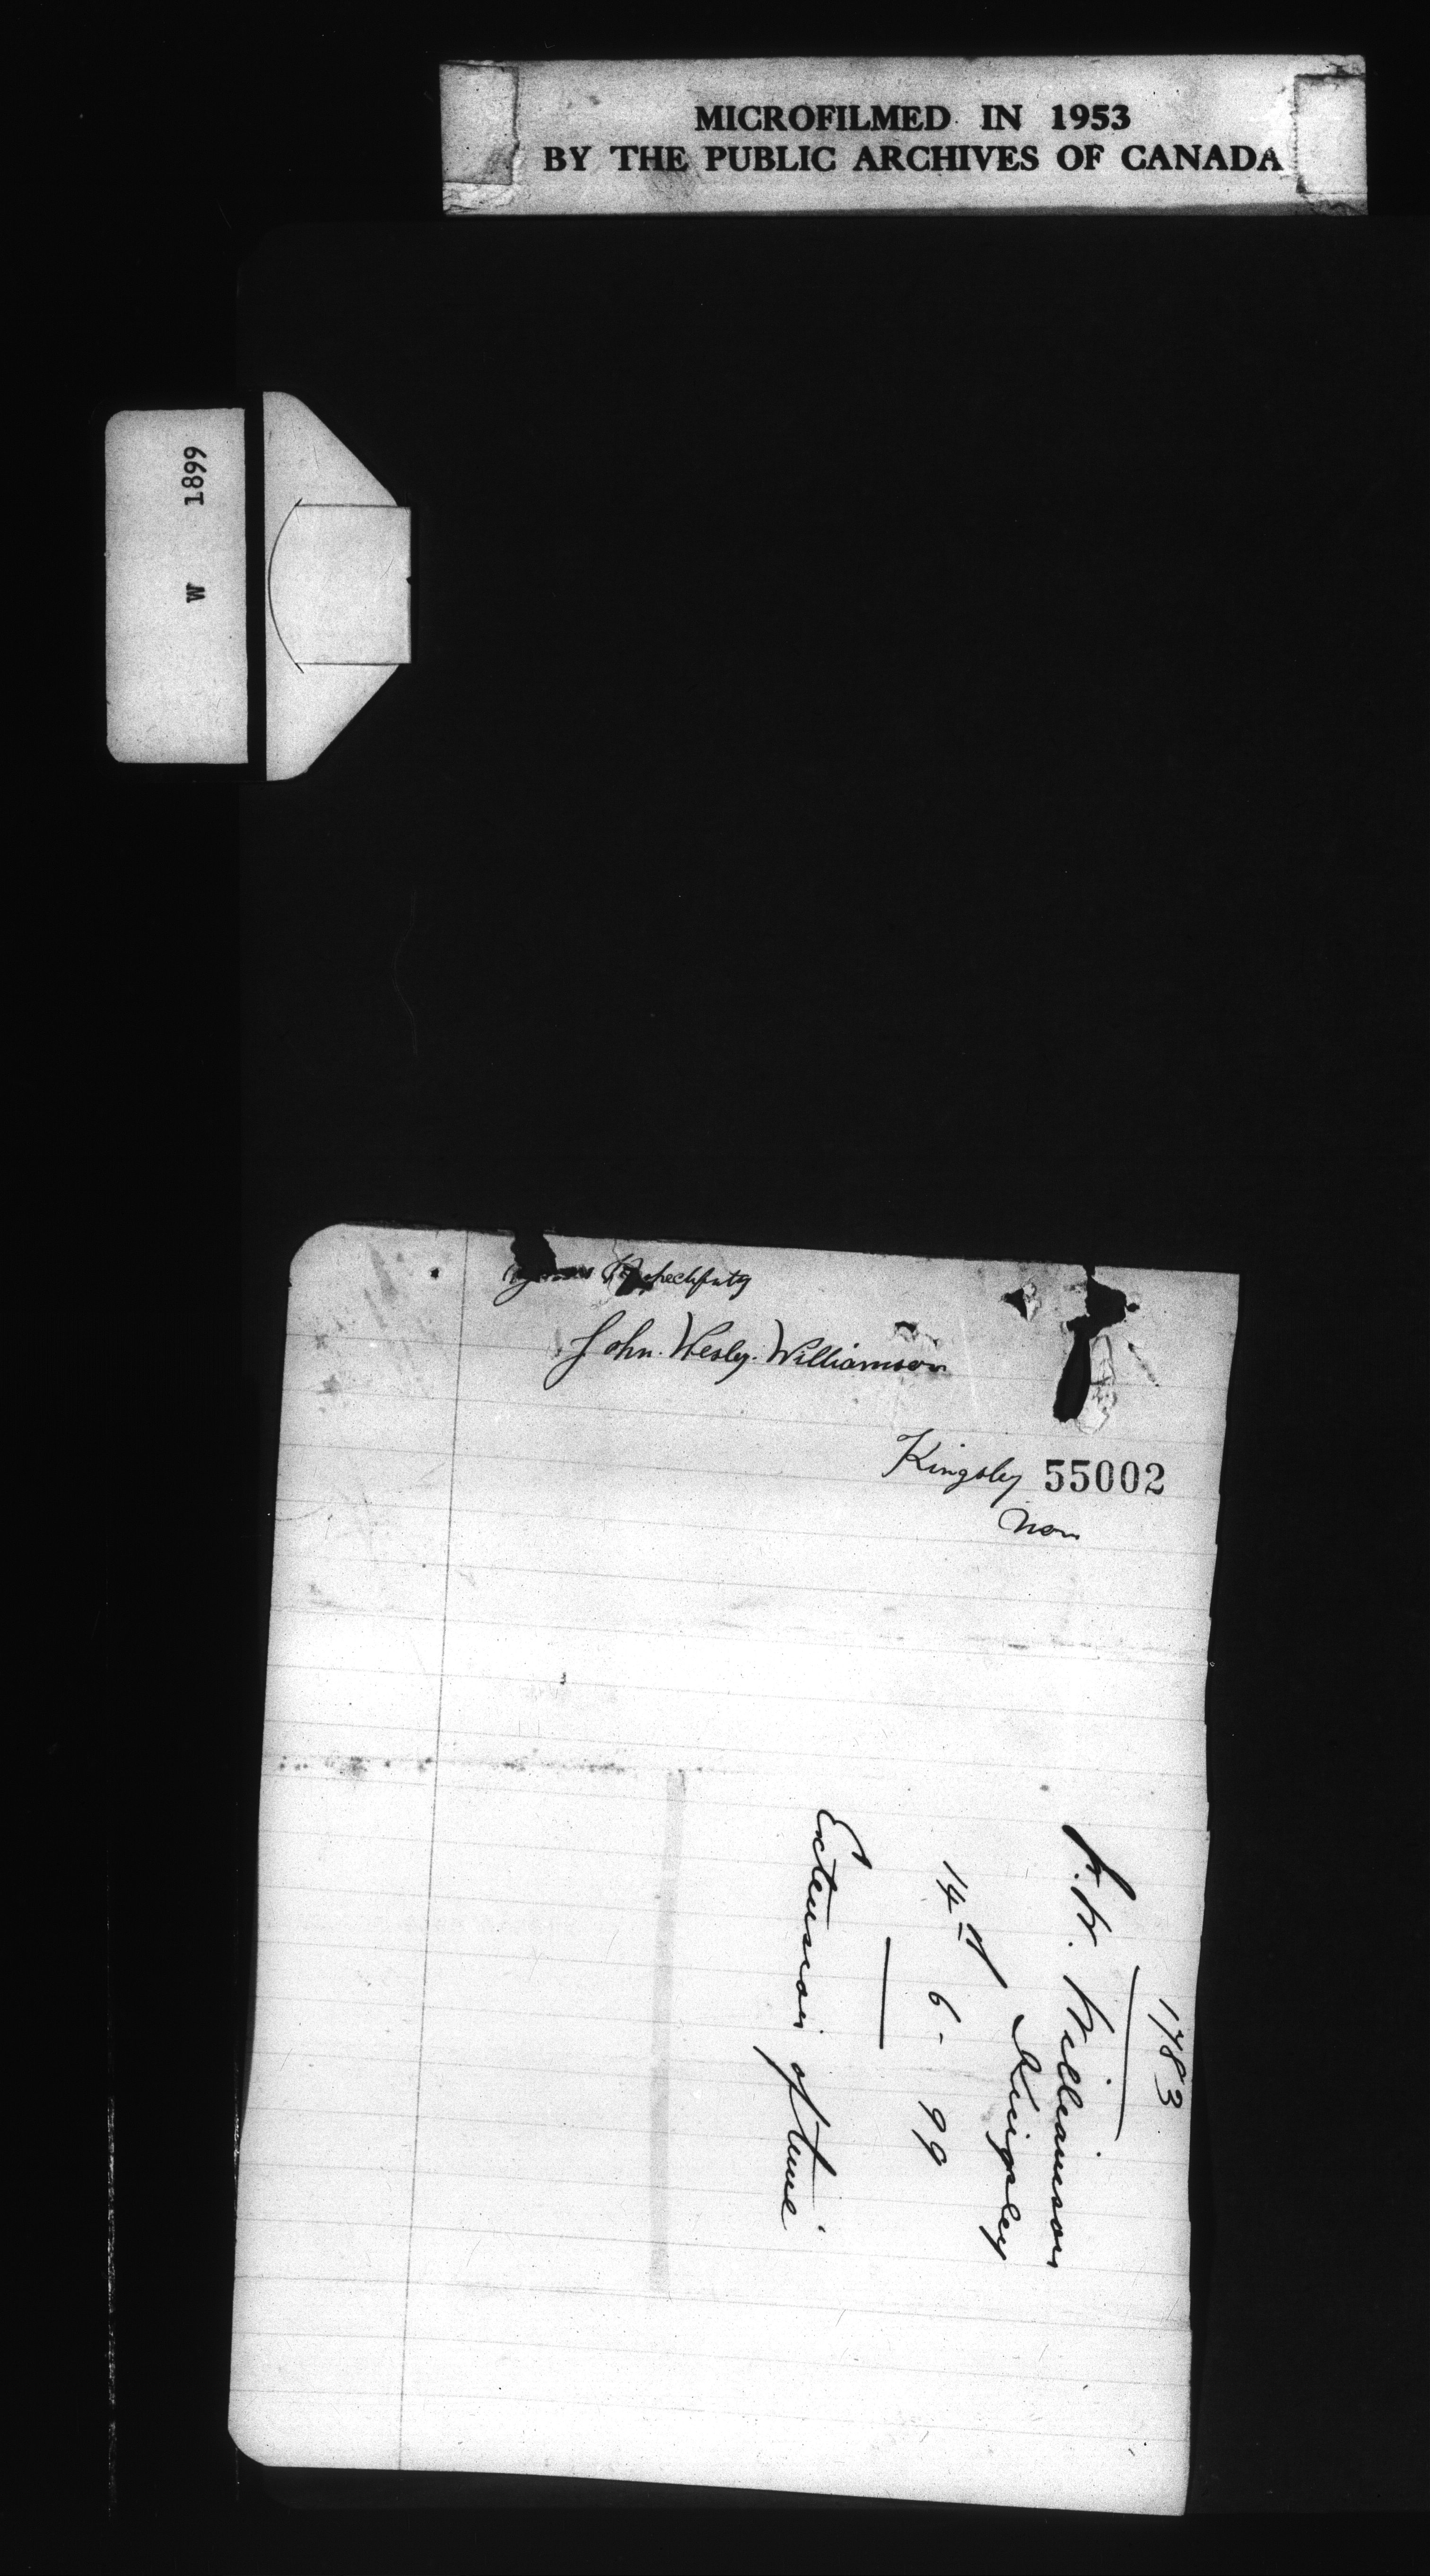 MICROFILMED IN 1953
BY THE PUBLIC ARCHIVES OF CANADA
W 1899
John. Wesley. Williamson
Kingsley 55002
Man
1783
J. W. Williamson
Kingsley
14th 6 - 99
Extension of time